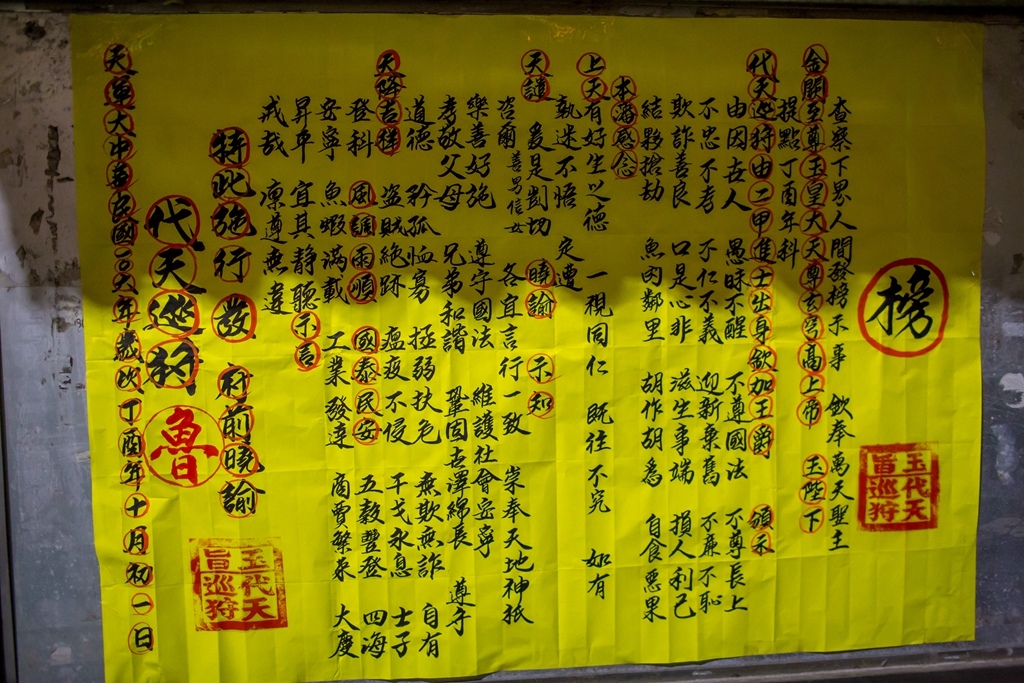 榜
玉代天
旨巡狩
查察下界人間發榜示事 欽奉萬天聖主
金闕至尊玉皇大天尊玄穹高上帝 玉陛下
提點丁酉年科
代天巡狩由二甲進士出身欽加王爵 頒示
由因古人 愚昧不醒 不遵國法 不尊長上
不忠不孝 不仁不義 迎新棄舊 不廉不恥
欺詐善良 口是心非 滋生事端 損人利己
結夥搶劫 魚肉鄰里 胡作胡為 自食惡果
本藩感念
上天有好生以德 一視同仁 既往不究 如有
執迷不悟 定遭
天譴 爰是剴切 曉諭 示知
咨爾善男信女 各宜言行一致 崇奉天地神祇
樂善好施 遵守國法 維護社會安寧 遵守
孝敬父母 兄弟和諧 鞏固古澤綿長
道德 矜孤恤寡 拯弱扶危 無欺無詐 自有
天降吉祥 盜賊絕跡 瘟疫不侵 干戈永息 士子
登科 風調雨順 國泰民安 五穀豐登 四海
安寧 魚蝦滿載 工業發達 商賈繁來 大慶
昇平 宜其靜聽示言
戒哉 凜遵無違
特此施行 發 府前曉諭
代天巡狩 魯
玉代天
旨巡狩
天運大中華民國一0六年歲次丁酉年十月初一日